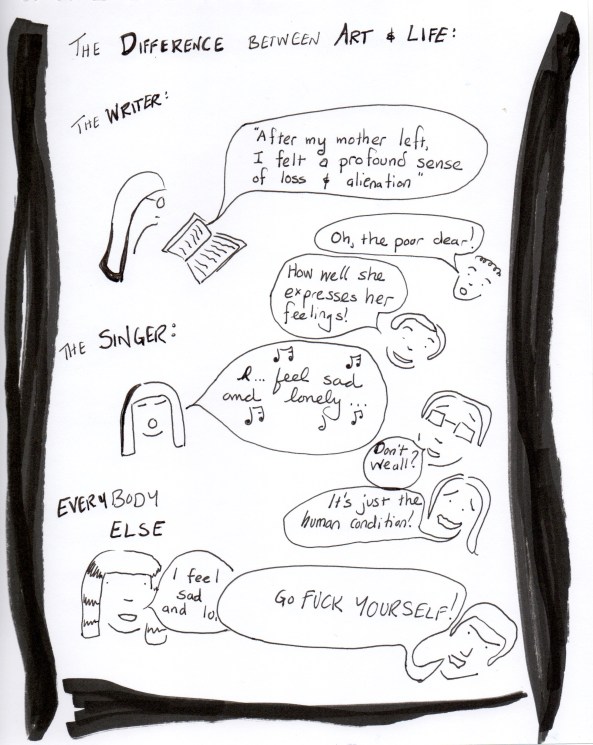 THE DIFFERENCE BETWEEN ART & LIFE:
THE WRITER:
"After my mother left,
I felt a profound sense
of loss & alienation"
Oh, the poor dear!
How well she
expresses her
feelings!
THE SINGER:
I... feel sad
and lonely...
Don't
we all?
It's just the
human condition!
EVERYBODY
ELSE
I feel
sad
and lo
GO FUCK YOURSELF!